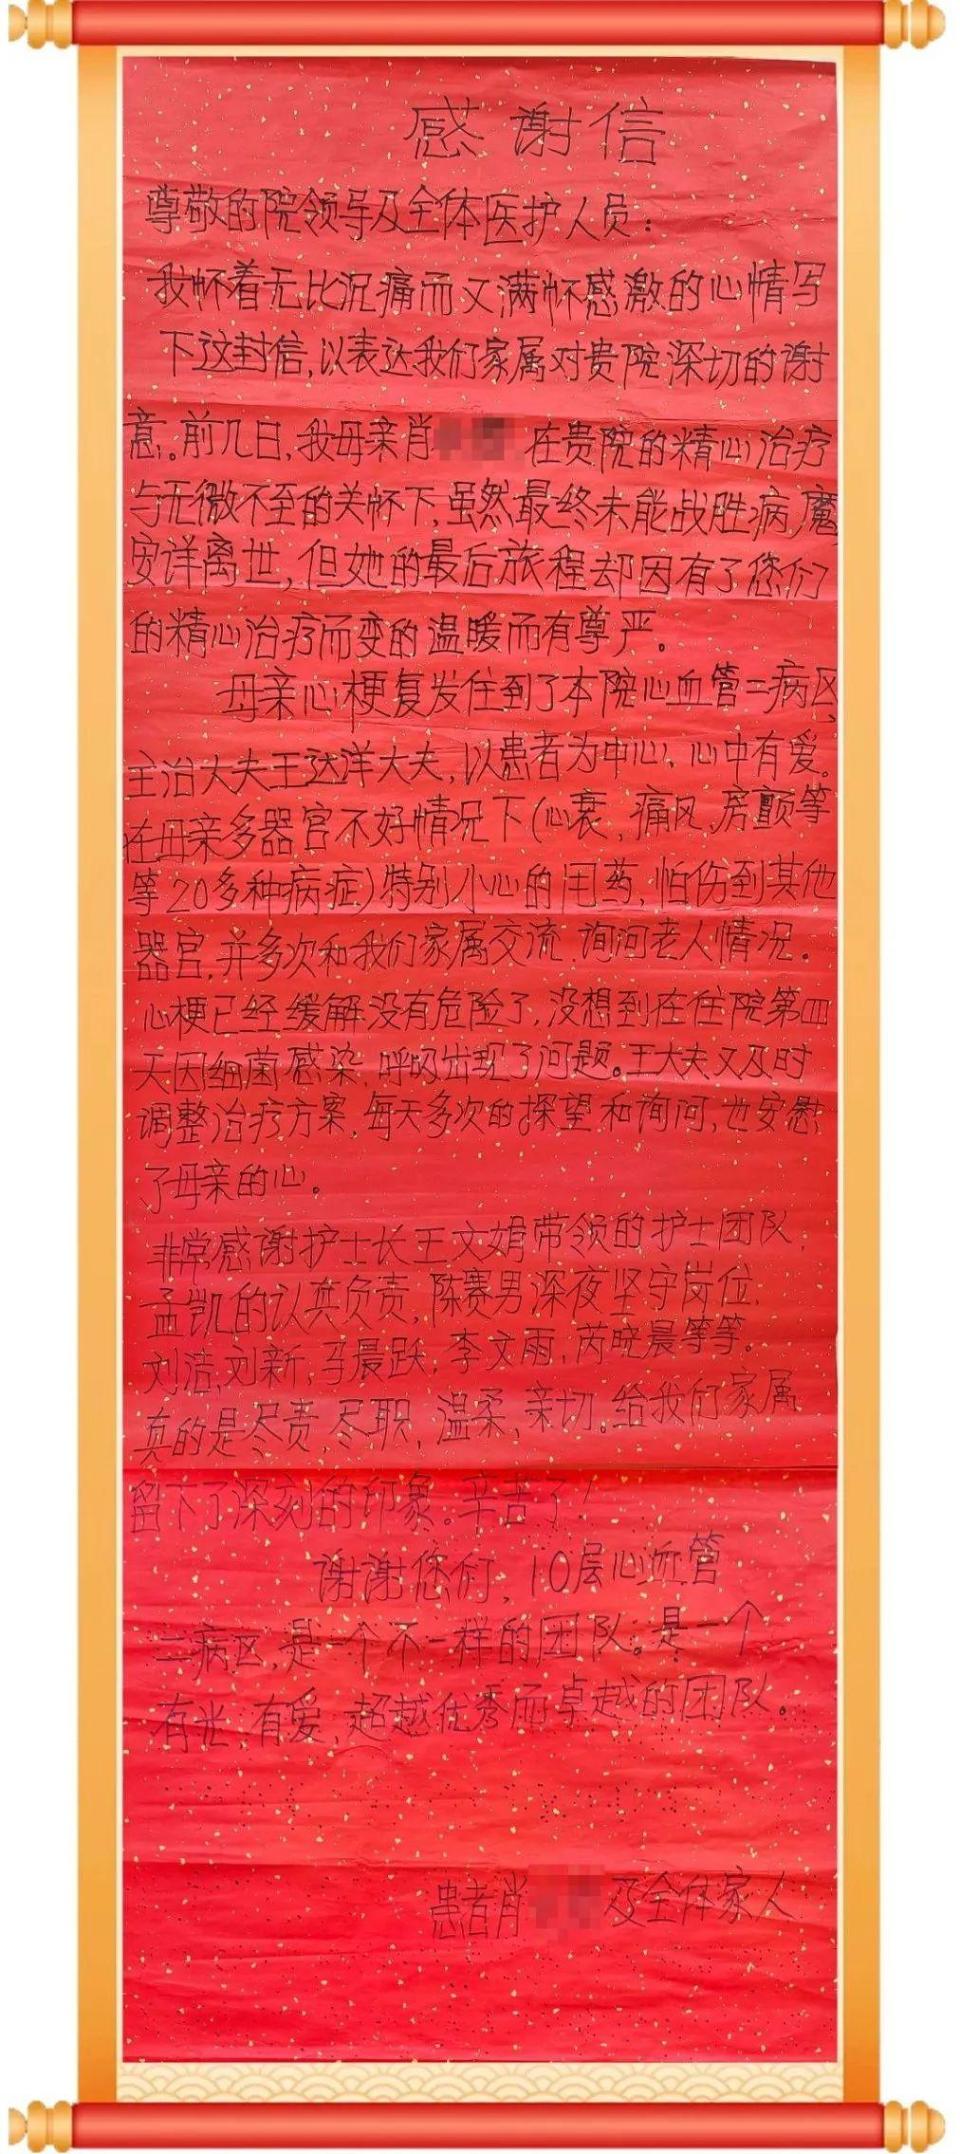 感谢信
尊敬的院领导及全体医护人员：
我怀着无比沉痛而又满怀感激的心情写
下这封信,以表达我们家属对贵院深切的谢
意。前几日,我母亲肖 在贵院的精心治疗
与无微不至的关怀下,虽然最终未能战胜病魔
安详离世,但她的最后旅程却因有了您们
的精心治疗而变的温暖而有尊严。
母亲心梗复发住到了本院心血管二病区,
主治大夫王达洋大夫,以患者为中心、心中有爱。
在母亲多器官不好情况下(心衰,痛风,房颤等
等20多种病症)特别小心的用药,怕伤到其他
器官,并多次和我们家属交流,询问老人情况。
心梗已经缓解没有危险了,没想到在住院第四
天因细菌感染,呼吸出现了问题。王大夫又及时
调整治疗方案,每天多次的探望和询问,也安慰
了母亲的心。
非常感谢护士长王文娟带领的护士团队,
孟凯的认真负责,陈赛男深夜坚守岗位,
刘洁,刘新,马晨跃,李文雨,芮晓晨等等。
真的是尽责,尽职,温柔,亲切。给我们家属
留下了深刻的印象。辛苦了!
谢谢您们,10层心血管
二病区,是一个不一样的团队。是一个
有光,有爱,超越优秀而卓越的团队。
患者肖 及全体家人